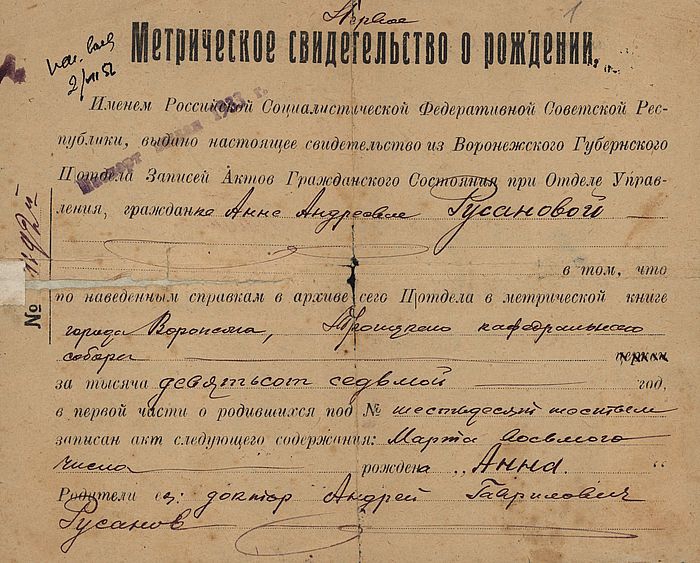 Первое
1
Метрическое свидетельство о рождении.
Именем Российской Социалистической Федеративной Советской Рес-
публики, выдано настоящее свидетельство из Воронежского Губернского
П отдела Записей Актов Гражданского Состояния при Отделе Управ-
ления, гражданке Анне Андреевне Русановой
№ 1192
в том, что
по наведенным справкам в архиве сего П отдела в метрической книге
города Воронежа, Троицкого кафедрального
собора церкви
за тысяча девятьсот седьмой год,
в первой части о родившихся под № шестьдесят шестым
записан акт следующего содержания: Марта восьмого
числа рождена „Анна.“
Родители ея: доктор Андрей Гаврилович
Русанов